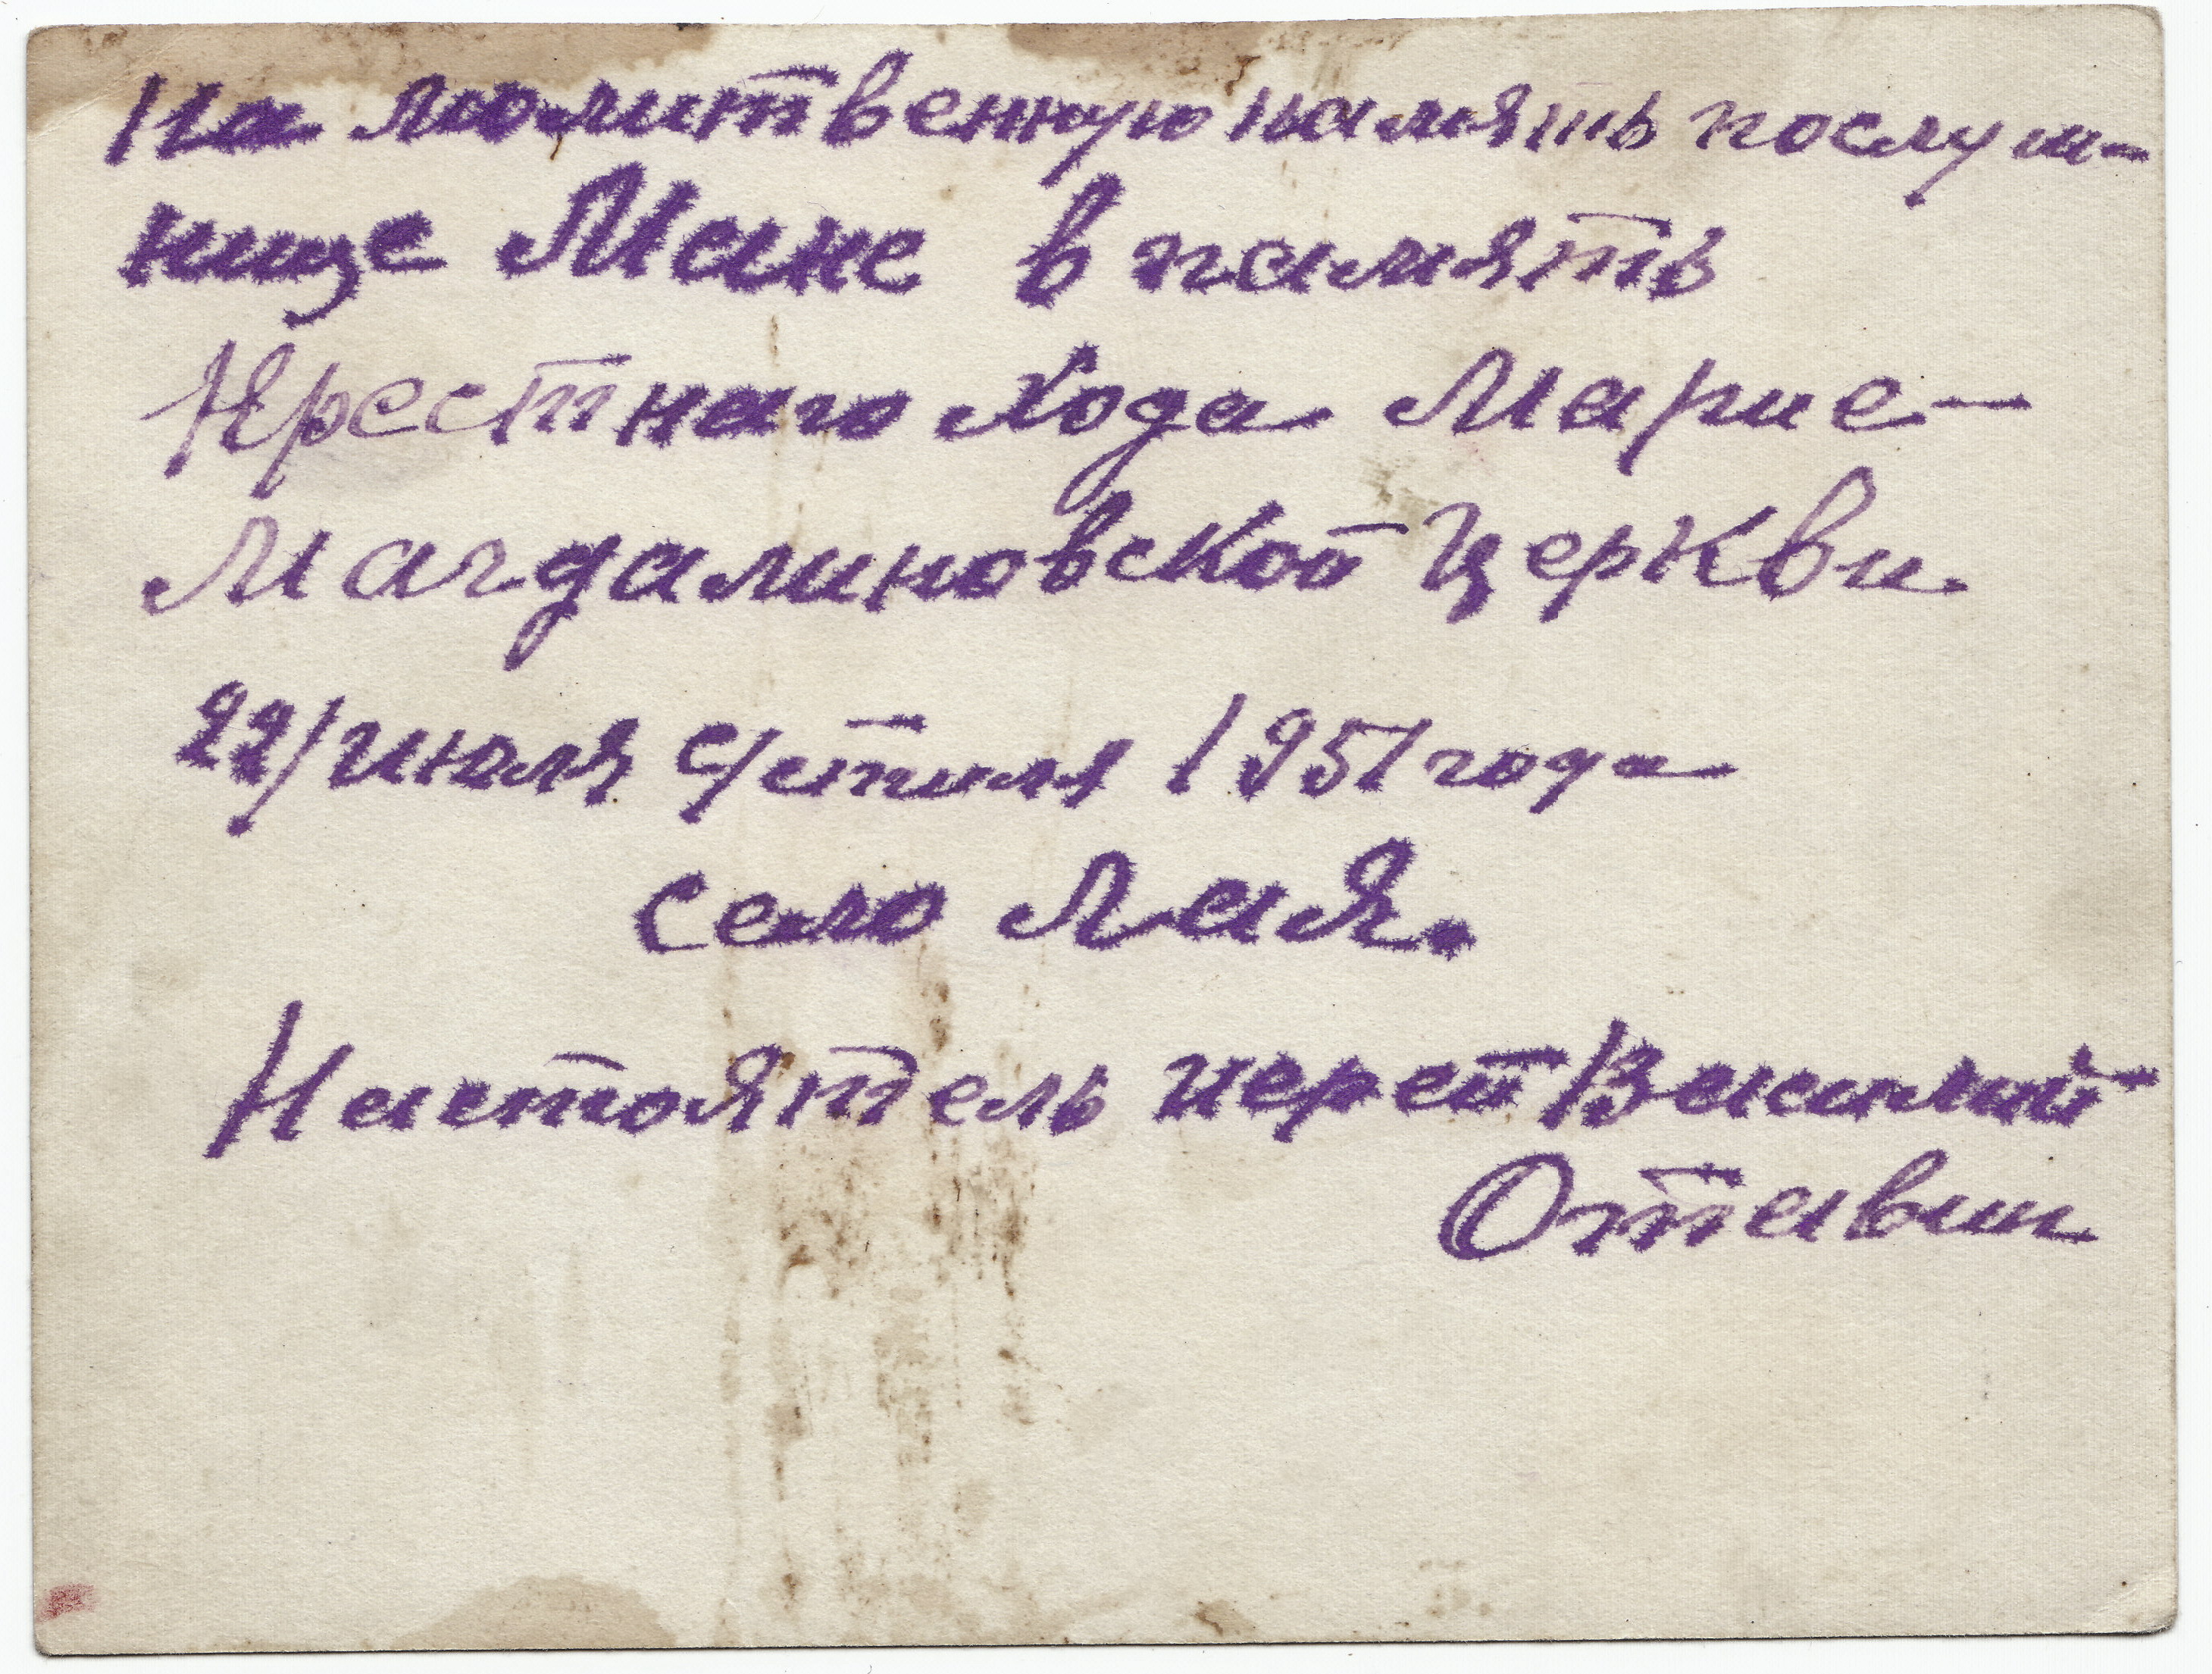 На молитвенную память послуш-
нице Мане в память
Крестнаго Хода Марие-
Магдалиновской Церкви
22/июля с/стиля 1951 года
село Лая.
Настоятель иерей Василий
Отавин